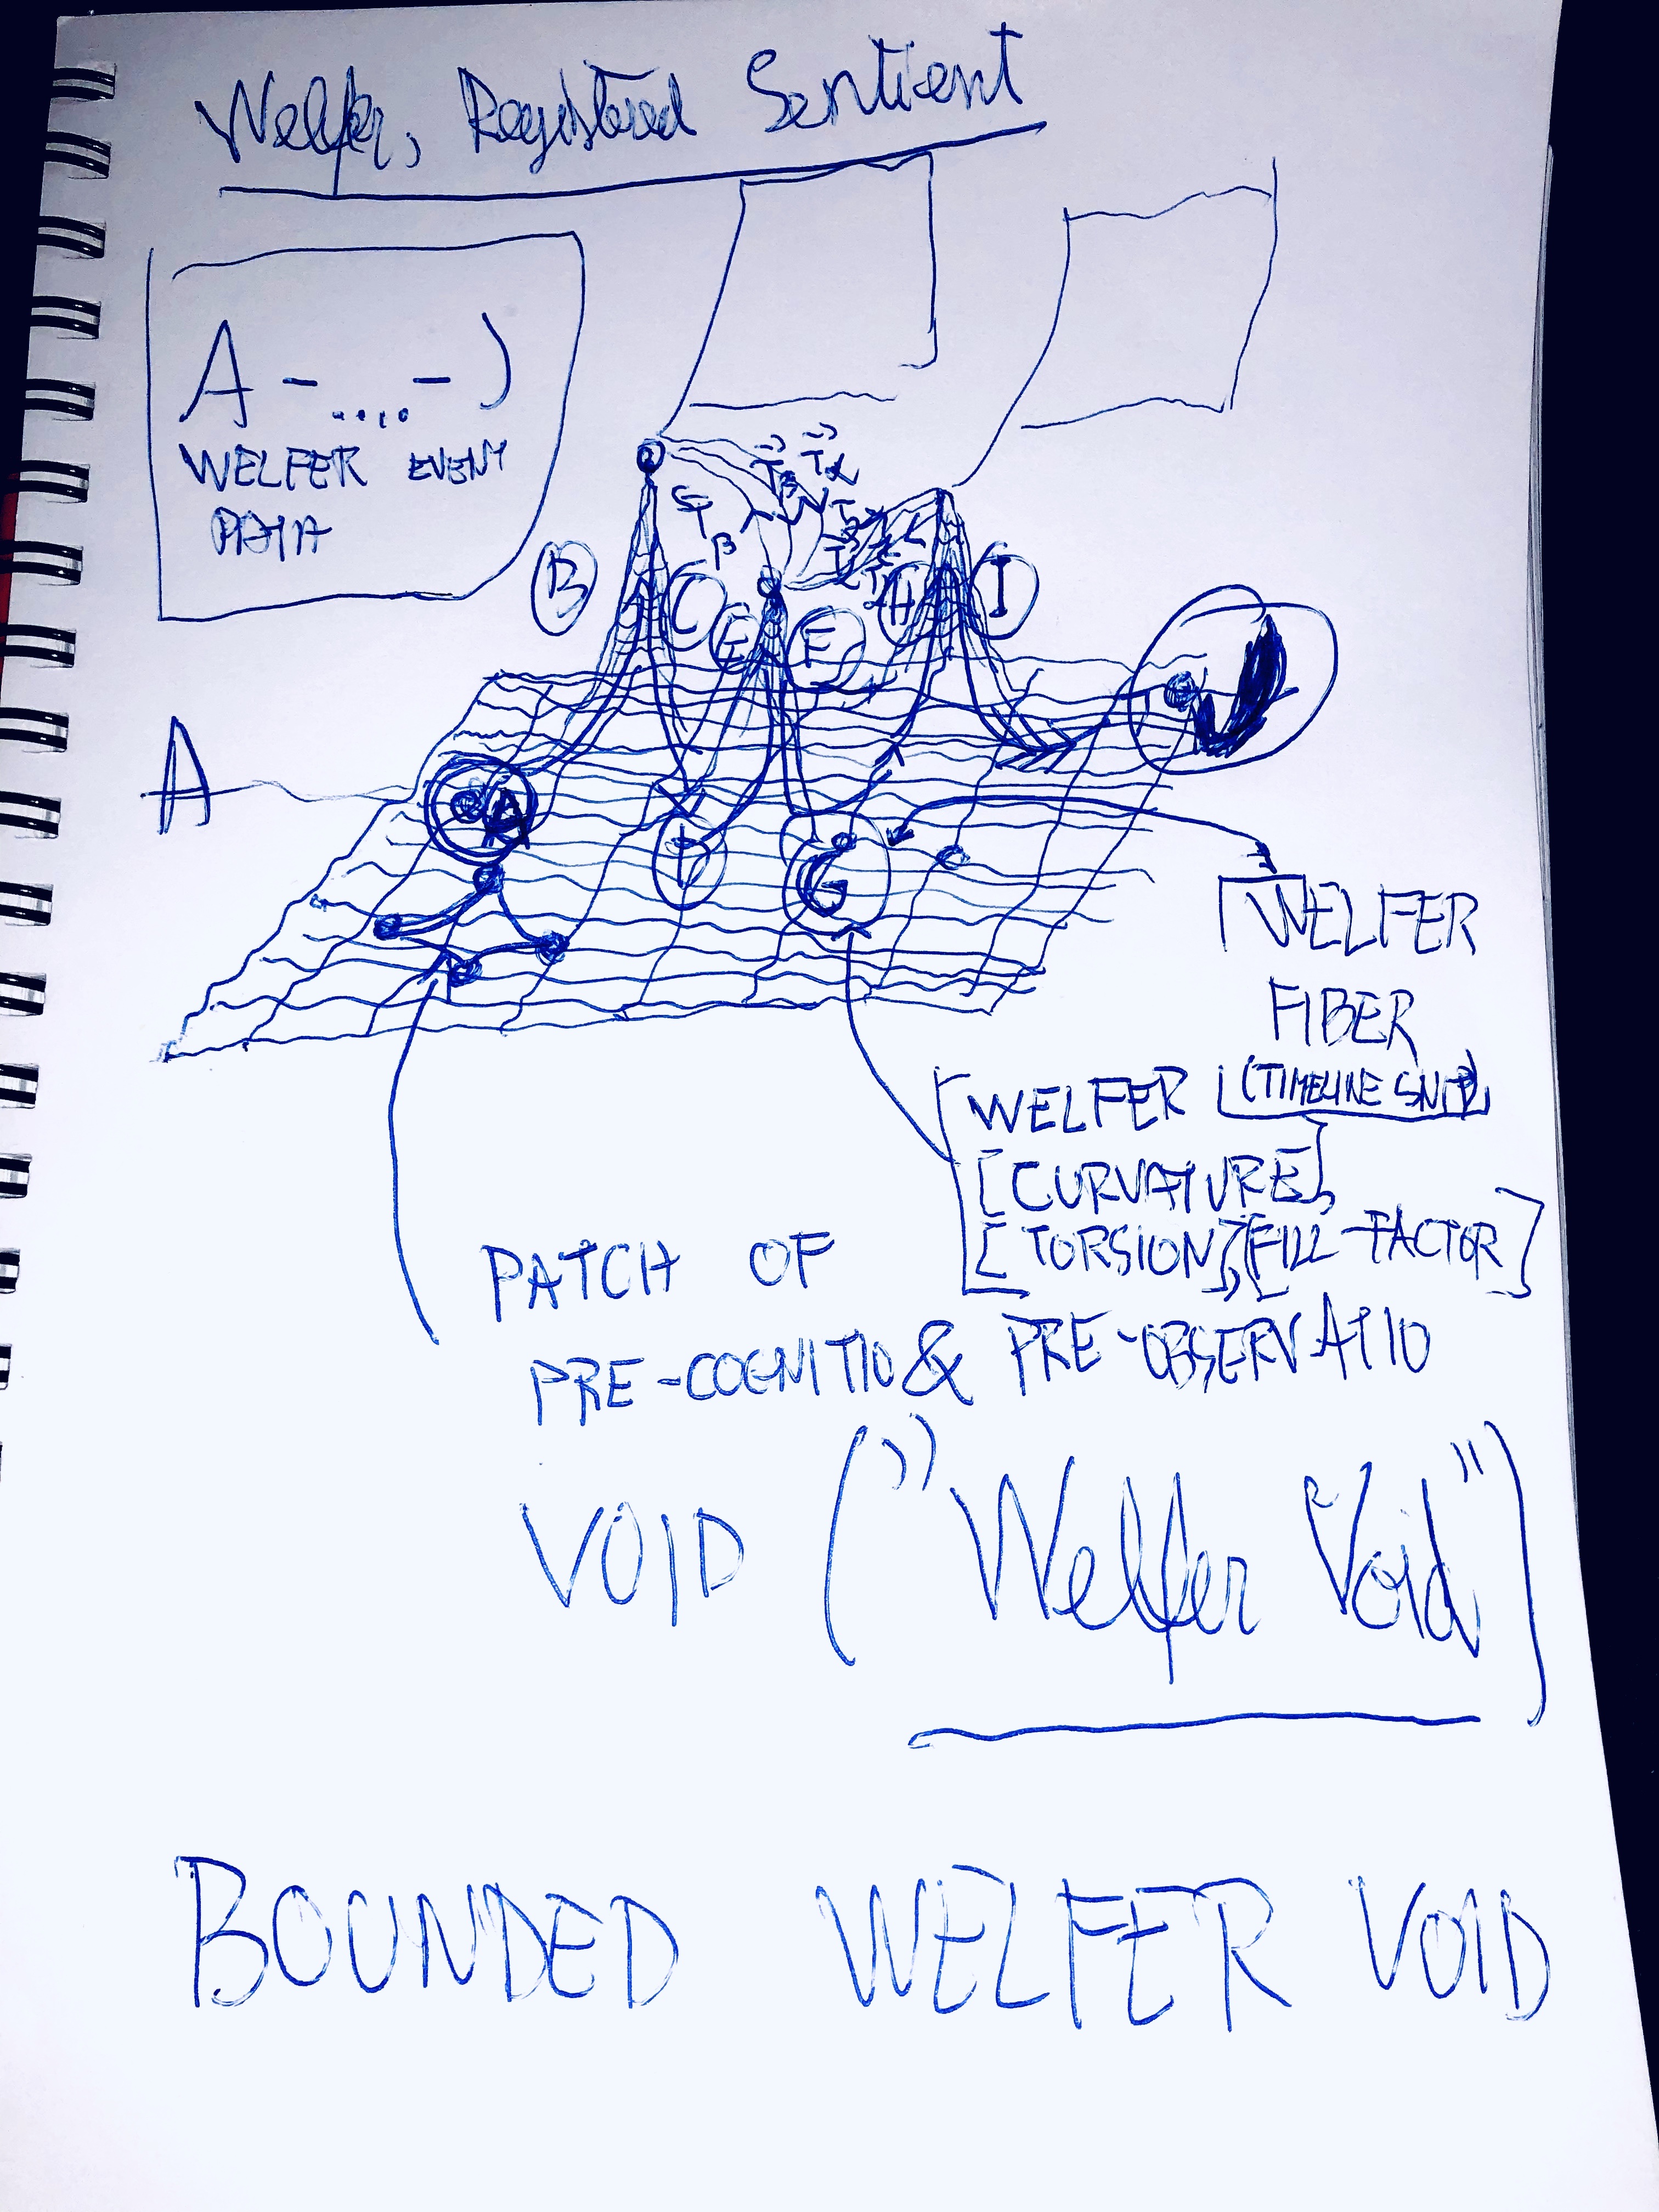 Welfer, Registered Sentient
A - .... - J
WELFER EVENT
PATH
B
C
E
F
H
I
J
A
A
D
G
WELFER
FIBER
(TIMELINE SNIP)
WELFER
[CURVATURE],
[TORSION], [FILL-FACTOR]
PATCH OF
PRE-COGNITIO & PRE-OBSERVATIO
VOID ("Welfer Void")
BOUNDED WELFER VOID